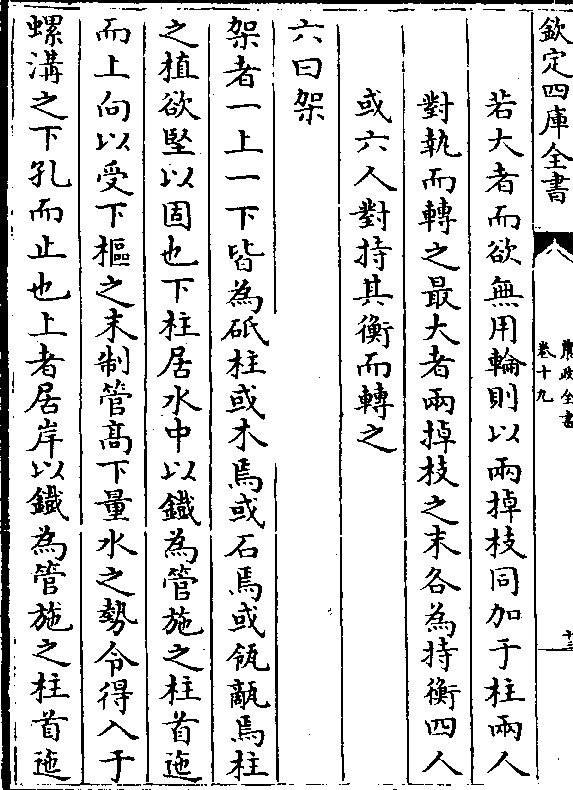 欽定四庫全書
農政全書
卷十九
十三
若大者而欲無用輪則以兩掉枝同加于柱兩人
對執而轉之最大者兩掉枝之末各為持衡四人
或六人對持其衡而轉之
六曰架
架者一上一下皆為砥柱或木焉或石焉或瓴甋焉柱
之植欲堅以固也下柱居水中以鐵為管施之柱首迤
而上向以受下樞之末制管高下量水之勢令得入于
螺溝之下孔而止也上者居岸以鐵為管施之柱首迤